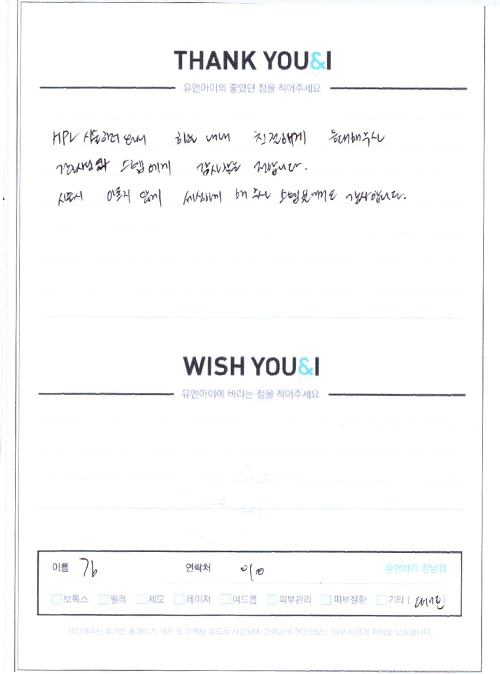 THANK YOU&I
유앤아이의 좋았던 점을 적어주세요
HPL 시술하러 와서 하는 내내 친절하게 응대해주신
간호사님과 스텝에게 감사함을 전합니다.
시술시 아프지 않게 세심하게 해 주신 스텝분에게도 감사합니다.
WISH YOU&I
유앤아이에 바라는 점을 적어주세요
이름 연락처 010 유앤아이 강남점
보톡스 필러 제모 레이저 여드름 피부관리 피부질환 기타 (